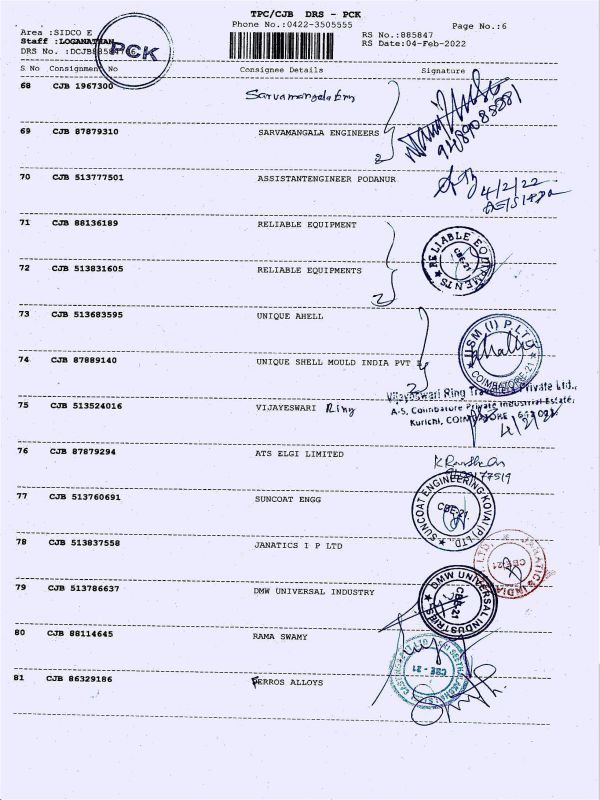 TPC/CJB DRS - PCK
Phone No.:0422-3505555
Page No.:6
Area :SIDCO E
Staff :LOGANATHAN
RS No.:885847
RS Date:04-Feb-2022
PCK
S No Consignment No Consignee Details Signature
68 CJB 1967300
69 CJB 87879310 SARVAMANGALA ENGINEERS
9489085581
70 CJB 513777501 ASSISTANTENGINEER PODANUR
4/2/22
71 CJB 88136189 RELIABLE EQUIPMENT
RELIABLE EQUIPMENTS
CBE-21
72 CJB 513831605 RELIABLE EQUIPMENTS
2
73 CJB 513683595 UNIQUE AHELL
USM (I) P.LTD
COIMBATORE-21
74 CJB 87889140 UNIQUE SHELL MOULD INDIA PVT
2
Vijayeswari Ring Private Ltd.,
A-5, Coimbatore Private Industrial Estate,
Kurichi,
75 CJB 513524016 VIJAYESWARI Ring
4/2/22
76 CJB 87879294 ATS ELGI LIMITED
77 CJB 513760691 SUNCOAT ENGG
SUNCOAT ENGINEERING KOVAI (P) LTD.
CBE-21
78 CJB 513837558 JANATICS I P LTD
CBE-21
79 CJB 513786637 DMW UNIVERSAL INDUSTRY
DMW UNIVERSAL INDUSTRIES
CBE-21
80 CJB 88114645 RAMA SWAMY
CBE - 21
81 CJB 86329186 FERROS ALLOYS